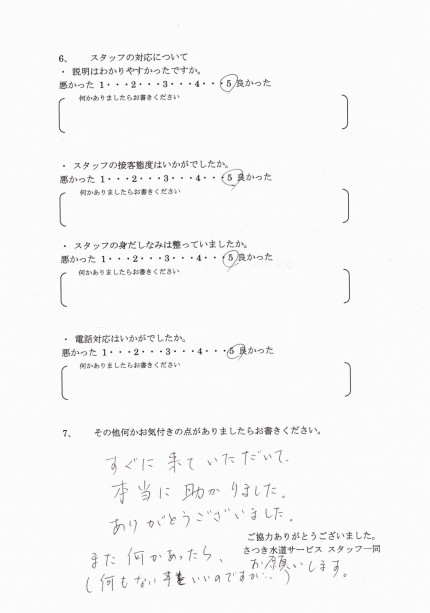 6、　スタッフの対応について
・ 説明はわかりやすかったですか。
悪かった 1・・・2・・・3・・・4・・・5 良かった
何かありましたらお書きください
・ スタッフの接客態度はいかがでしたか。
悪かった 1・・・2・・・3・・・4・・・5 良かった
何かありましたらお書きください
・ スタッフの身だしなみは整っていましたか。
悪かった 1・・・2・・・3・・・4・・・5 良かった
何かありましたらお書きください
・ 電話対応はいかがでしたか。
悪かった 1・・・2・・・3・・・4・・・5 良かった
何かありましたらお書きください
7、　その他何かお気付きの点がありましたらお書きください。
すぐに来ていただいて、
本当に助かりました。
ありがとうございました。
ご協力ありがとうございました。
さつき水道サービス スタッフ一同
また何かあったら、お願いします。
(何もない いいのですが…)